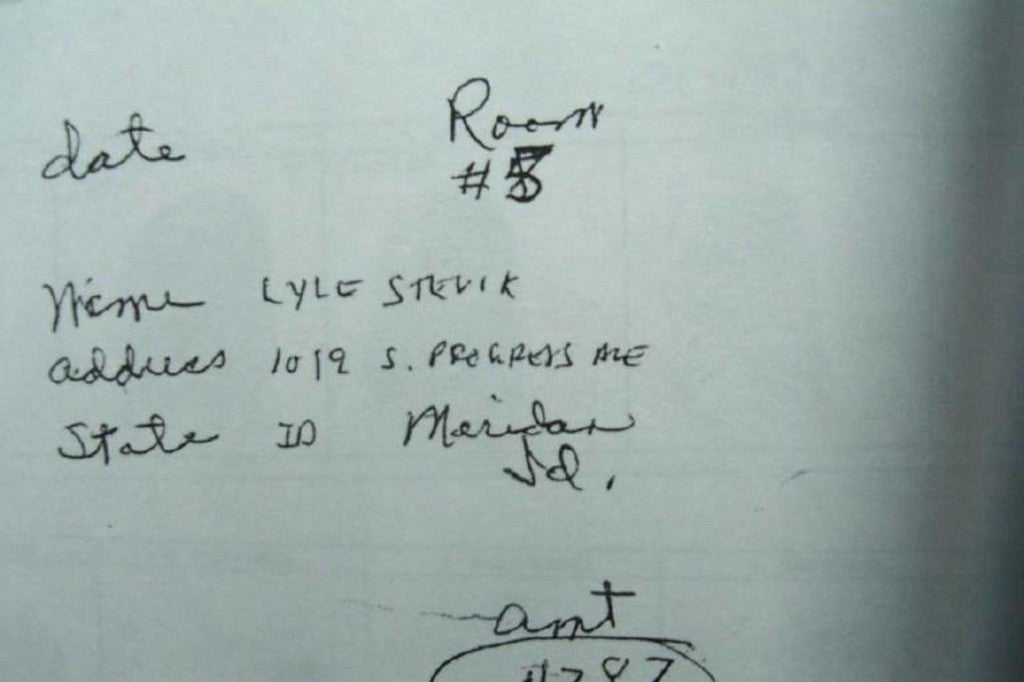 date Room
#5
Name LYLE STEVIK
address 1019 S. PROGRESS AVE
State ID Meridan
Id.
amt